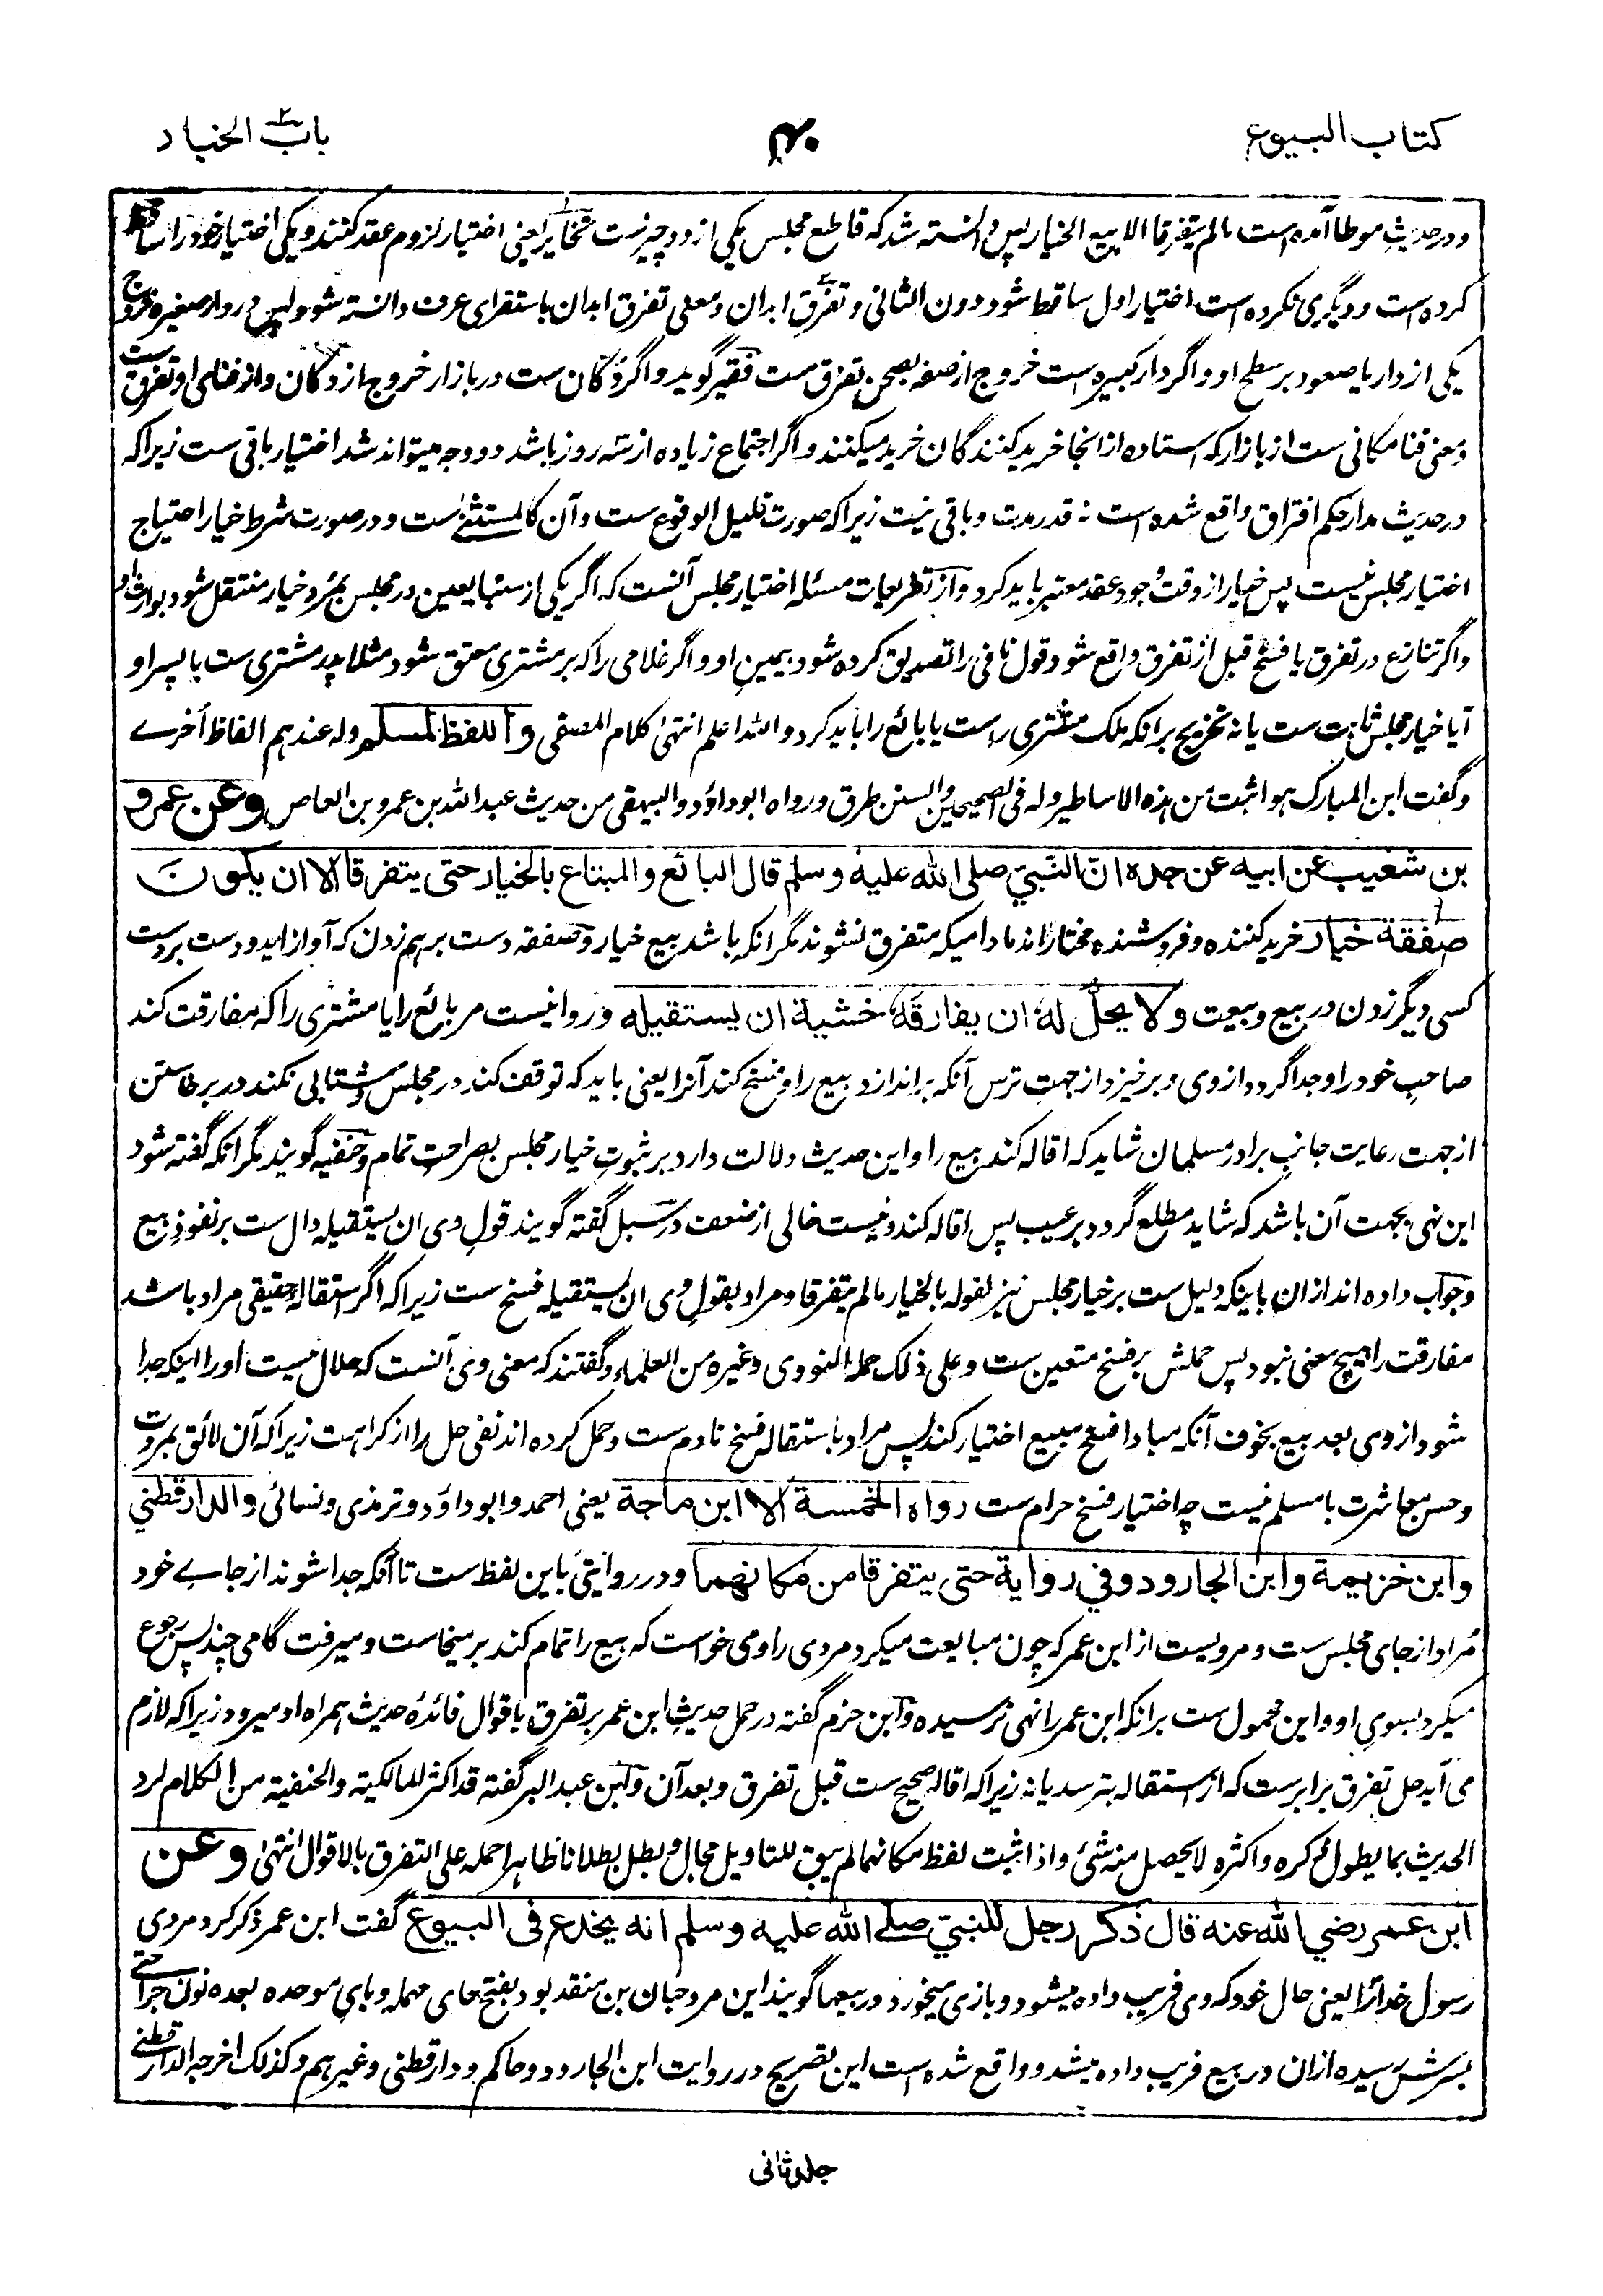 كتاب البيوع
۴۰
باب ۲ الخيار
ودر حدیث موطا آمده است مالم یتفرقا الا بیع الخیار پس دانسته شد که قاطع مجلس یکی از دو چیزست تخایر یعنی اختیار لزوم عقد کنند و یکی اختیار خود را ساقط
کرده است و دیگری نکرده است اختیار اول ساقط شود دون الثانی و تفرق ابدان و معنی تفرق ابدان باستقرای عرف دانسته شود پس در دار صغیره خروج
یکی از دار یا صعود بر سطح او و اگر دار کبیره است خروج از صفه بصحن تفرق ست فقیر گوید و اگر دکان ست در بازار خروج از دکان و از فنای او تفرق ست
و معنی فنا مکانی ست از بازار که استاده از انجا خرید کنندگان خرید میکنند و اگر اجتماع زیاده از سه روز باشد دو وجه میتواند شد اختیار باقی ست زیرا که
در حدیث مدار حکم افتراق واقع شده است نه قدر مدت و باقی نیست زیرا که صورت قلیل الوقوع ست و آن کالمستثنی ست و در صورت شرط خیار احتیاج
اختیار مجلس نیست پس خیار از وقت وجود عقد معتبر باید کرد و از تفریعات مسئله اختیار مجلس آنست که اگر یکی از متبایعین در مجلس بمرد خیار منتقل شود بوارث او
و اگر تنازع در تفرق یا فسخ قبل از تفرق واقع شود قول نافی را تصدیق کرده شود بیمین او و اگر غلامی را که بر مشتری معتق شود مثلا پدر مشتری ست یا پسر او
آیا خیار مجلس ثابت ست یا نه تخریج بر آنکه ملک مشتری راست یا بائع را باید کرد والله اعلم انتهی کلام المصفی واللفظ لمسلم وله عندهم الفاظ اخرے
وگفت ابن المبارک هو اثبت من هذه الاساطیر وله فی الصحیحین والسنن طرق ورواه ابو داؤد والبیهقی من حدیث عبد الله بن عمرو بن العاص وعن عمرو
بن شعيب عن ابيه عن جده ان النبي صلى الله عليه وسلم قال البائع والمبتاع بالخيار حتى يتفرقا الا ان يكون
صفقة خيار خرید کننده و فروشنده مختار اند مادامیکه متفرق نشوند مگر آنکه باشد بیع خیار و صفقه دست برهم زدن که آواز آید و دست بر دست
کسی دیگر زدن در بیع و بیعت ولا يحل له ان يفارقه خشية ان يستقيله و روا نیست مر بائع را یا مشتری را که مفارقت کند
صاحب خود را و جدا گردد از وی و برخیزد از جهت ترس آنکه براندازد بیع را و فسخ کند آنرا یعنی باید که توقف کند در مجلس و شتابی نکند در برخاستن
از جهت رعایت جانب برادر مسلمان شاید که اقاله کند بیع را و این حدیث دلالت دارد بر ثبوت خیار مجلس بصراحت تمام و حنفیه گویند مگر آنکه گفته شود
این نهی بجهت آن باشد که شاید مطلع گردد بر عیب پس اقاله کند و نیست خالی از ضعف در سبل گفته گویند قول وی ان یستقیله دال ست بر نفوذ بیع
و جواب داده اند ازان باینکه دلیل ست بر خیار مجلس نیز لقوله بالخیار مالم یتفرقا و مراد بقول وی ان یستقیله فسخ ست زیرا که اگر استقاله حقیقی مراد باشد
مفارقت را هیچ معنی نبود پس حملش بر فسخ متعین ست وعلی ذلک حمله النووی وغیره من العلماء و گفتند که معنی وی آنست که حلال نیست او را اینکه جدا
شود از وی بعد بیع بخوف آنکه مبادا فسخ مبیع اختیار کند پس مراد باستقاله فسخ نادم ست و حمل کرده اند نفی حل را از کراهت زیرا که آن لائق بمروت
و حسن معاشرت با مسلم نیست چه اختیار فسخ حرام ست رواه الخمسة الا ابن ماجة یعنی احمد و ابو داؤد و ترمذی و نسائی والدارقطني
وابن خزيمة وابن الجارود وفي رواية حتى يتفرقا من مكانهما و در روایتی باین لفظ ست تا آنکه جدا شوند از جاے خود
مراد از جای مجلس ست و مرویست از ابن عمر که چون مبایعت میکرد مردی را و می خواست که بیع را تمام کند بر میخاست و میرفت گامی چند پس رجوع
میکرد بسوی او و این محمول ست بر آنکه ابن عمر را نهی نرسیده و ابن حزم گفته در حمل حدیث ابن عمر بر تفرق باقوال فائدهٔ حدیث همراه او میرود زیرا که لازم
می آید حل تفرق برابرست که از استقاله بترسد یا نه زیرا که اقاله صحیح ست قبل تفرق و بعد آن و ابن عبد البر گفته قد اکثر المالکیة والحنفیة من الکلام لرد
الحدیث بما یطول ذکره واکثره لا یحصل منه شئ واذا ثبت لفظ مکانهما لم یبق للتاویل مجال وبطل بطلانا ظاهرا حمله علی التفرق بالاقوال انتهی وعن
ابن عمر رضي الله عنه قال ذكر رجل للنبي صلے الله عليه وسلم انه يخدع فى البيوع گفت ابن عمر ذکر کرد مردی
رسول خدا را یعنی حال خود که وی فریب داده میشود و بازی میخورد در بیعها گویند این مرد حبان بن منقذ بود بفتح حای مهمله و بای موحده بعده نون جراحتے
بسرش رسیده ازان در بیع فریب داده میشد و واقع شده است این تصریح در روایت ابن الجارود و حاکم و دارقطنی وغیرهم وکذلک اخرجه الدارقطنے
جلد ثانی